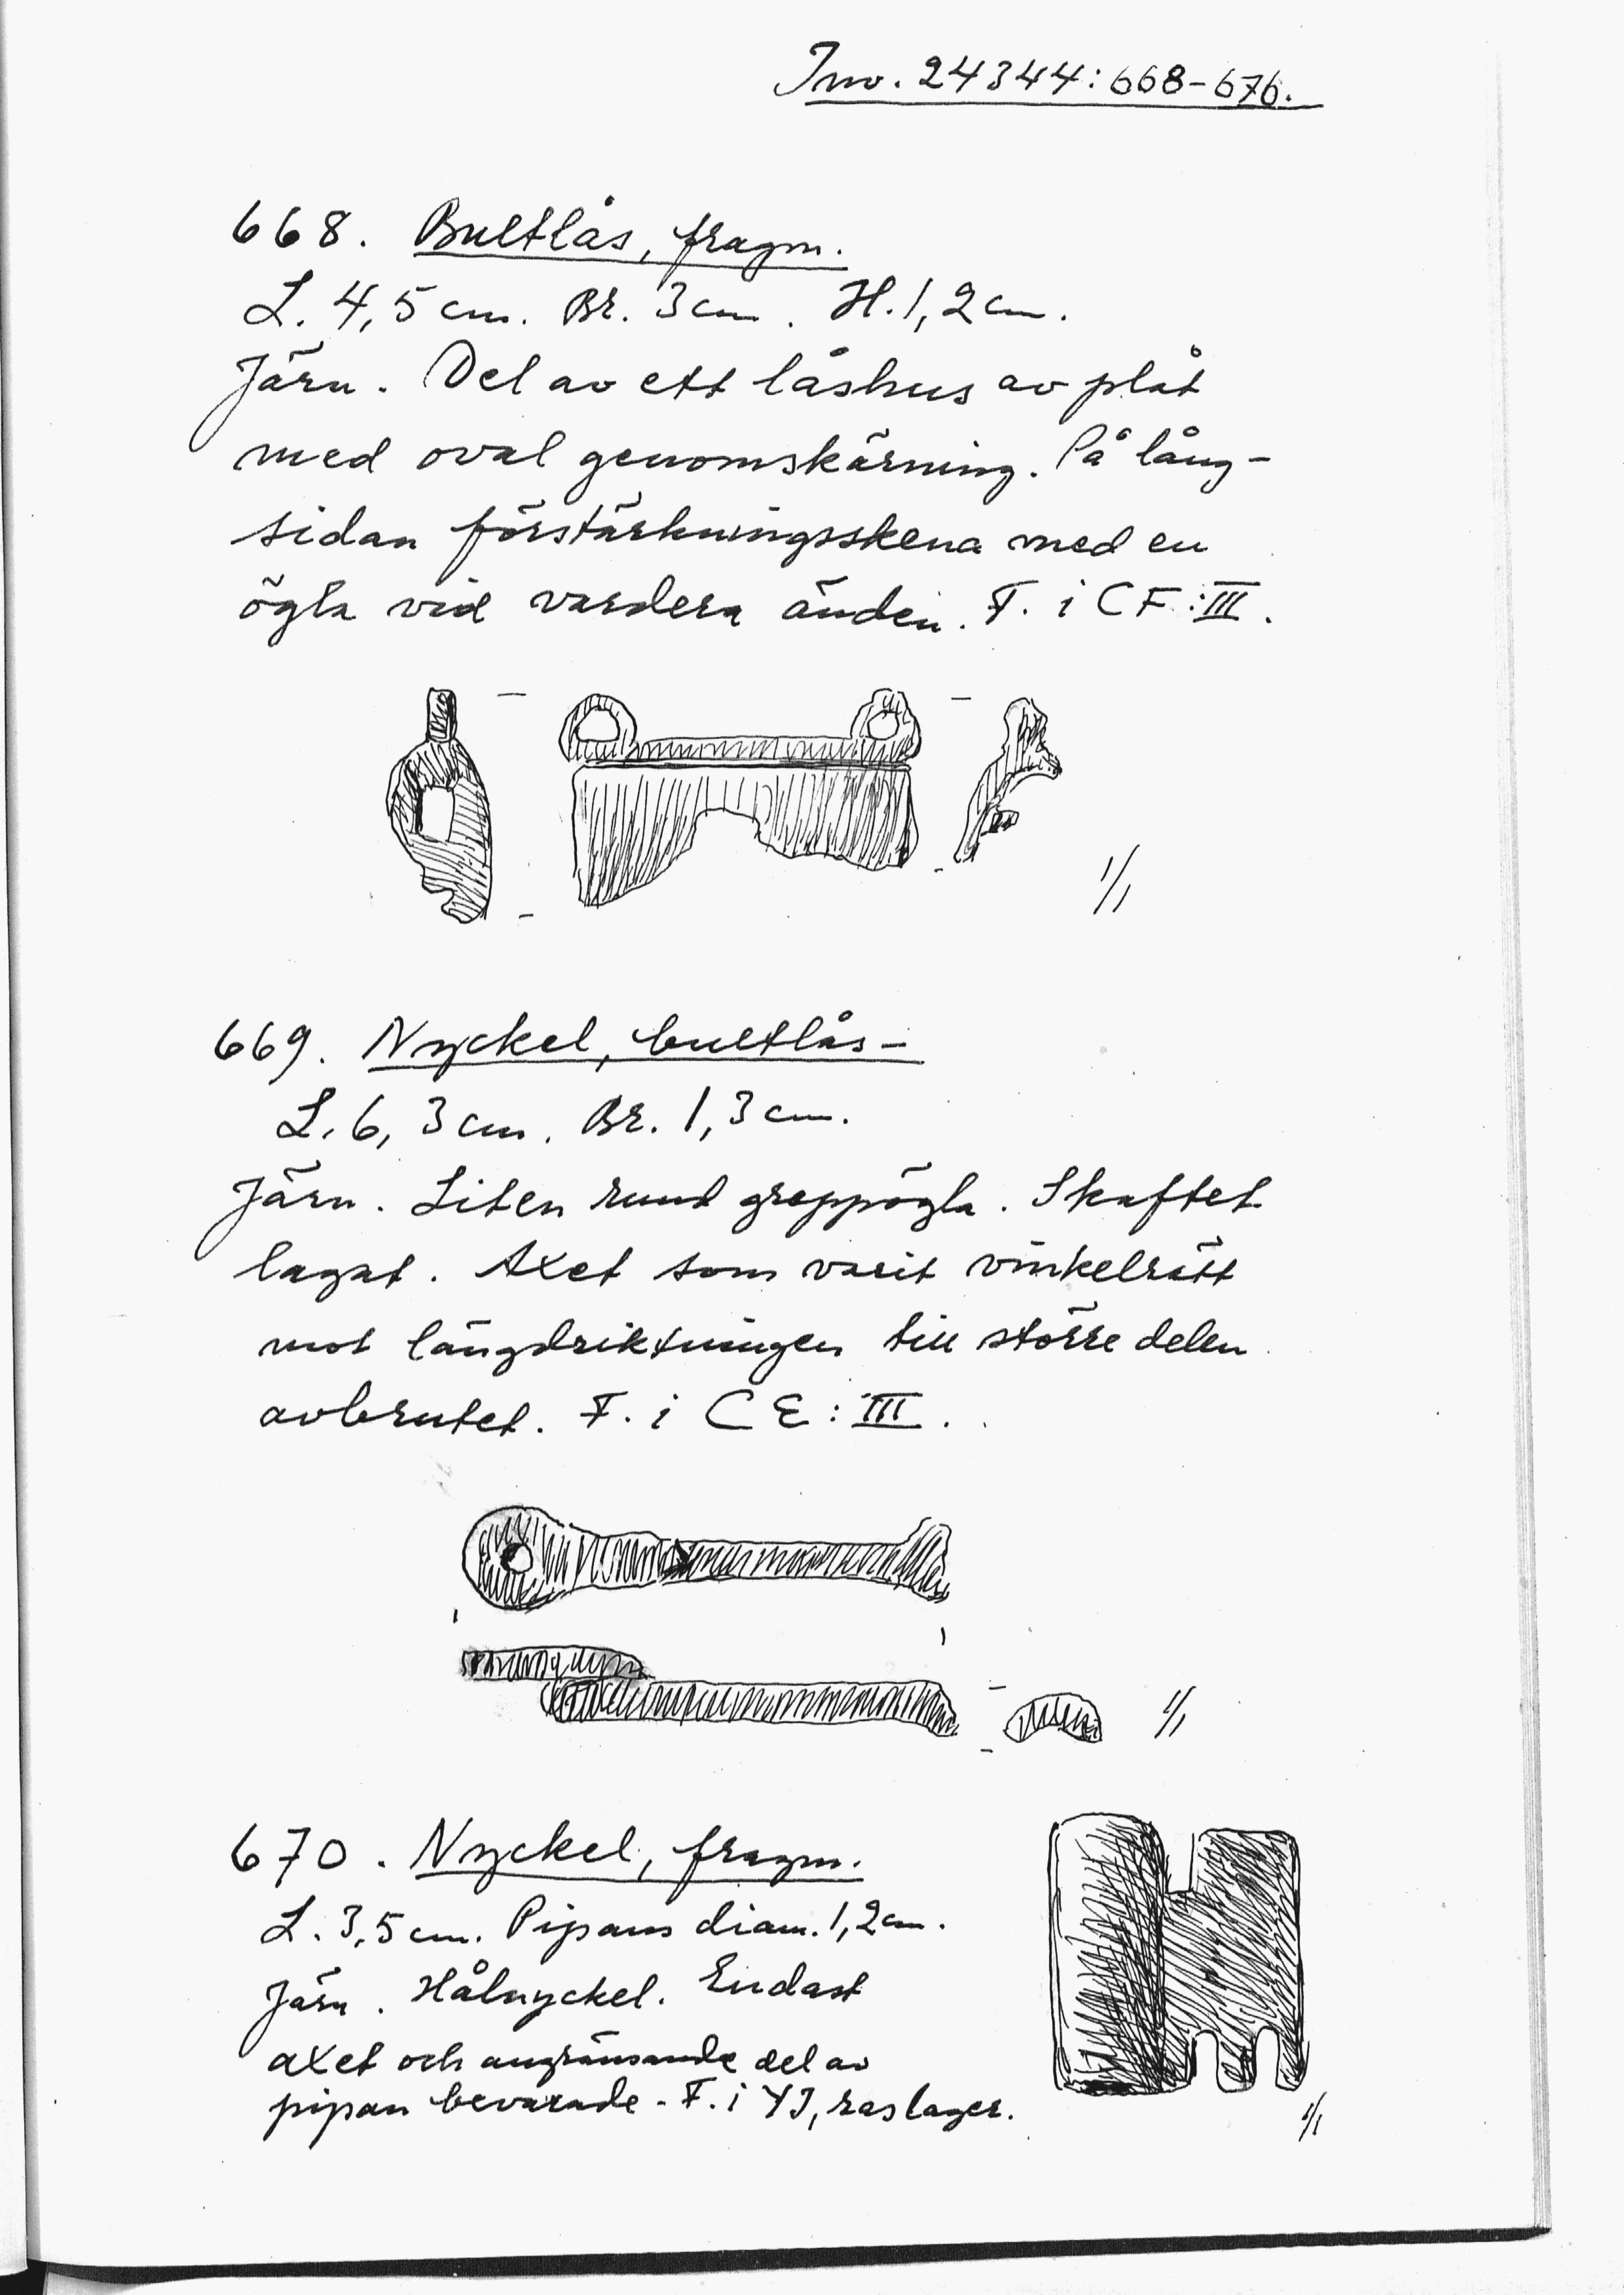 Inv. 24344:668-676.
668. Bultlås, fragm.
L. 4,5 cm. Br. 3 cm. H. 1,2 cm.
Järn. Del av ett låshus av plåt
med oval genomskärning. På lång-
sidan förstärkningsskena med en
ögla vid vardera änden. F. i CF:III.
1/1
669. Nyckel, bultlås-
L. 6,3 cm. Br. 1,3 cm.
Järn. Liten rund greppögla. Skaftet
lagat. Axet som varit vinkelrätt
mot längdriktningen till större delen
avbrutet. F. i CE:III.
1/1
670. Nyckel, fragm.
L. 3,5 cm. Pipans diam. 1,2 cm.
Järn. Hålnyckel. Endast
axet och angränsande del av
pipan bevarade. F. i YJ, raslager.
1/1